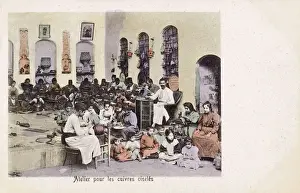 Atelier pour les cuivres ciselés